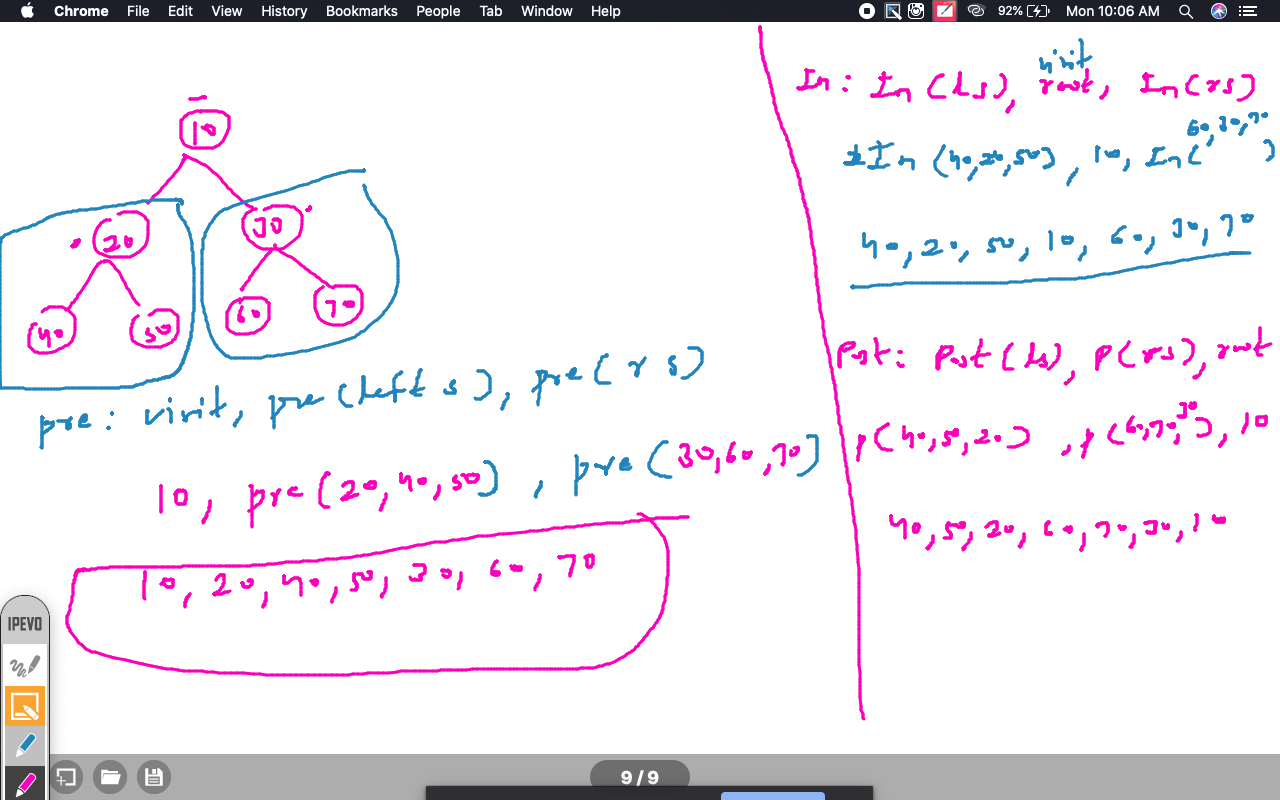 Chrome File Edit View History Bookmarks People Tab Window Help 92% Mon 10:06 AM
10
20 30
40 50 60 70
pre: visit, pre (left s), pre( r s)
10, pre(20, 40, 50), pre (30, 60, 70)
10, 20, 40, 50, 30, 60, 70
visit
In: In (ls), root, In(rs)
60, 30, 70
In (40, 20, 50), 10, In( )
40, 20, 50, 10, 60, 30, 70
Post: Post (ls), P(rs), root
P(40, 50, 20), P(60, 70, 30), 10
40, 50, 20, 60, 70, 30, 10
IPEVO
9 / 9